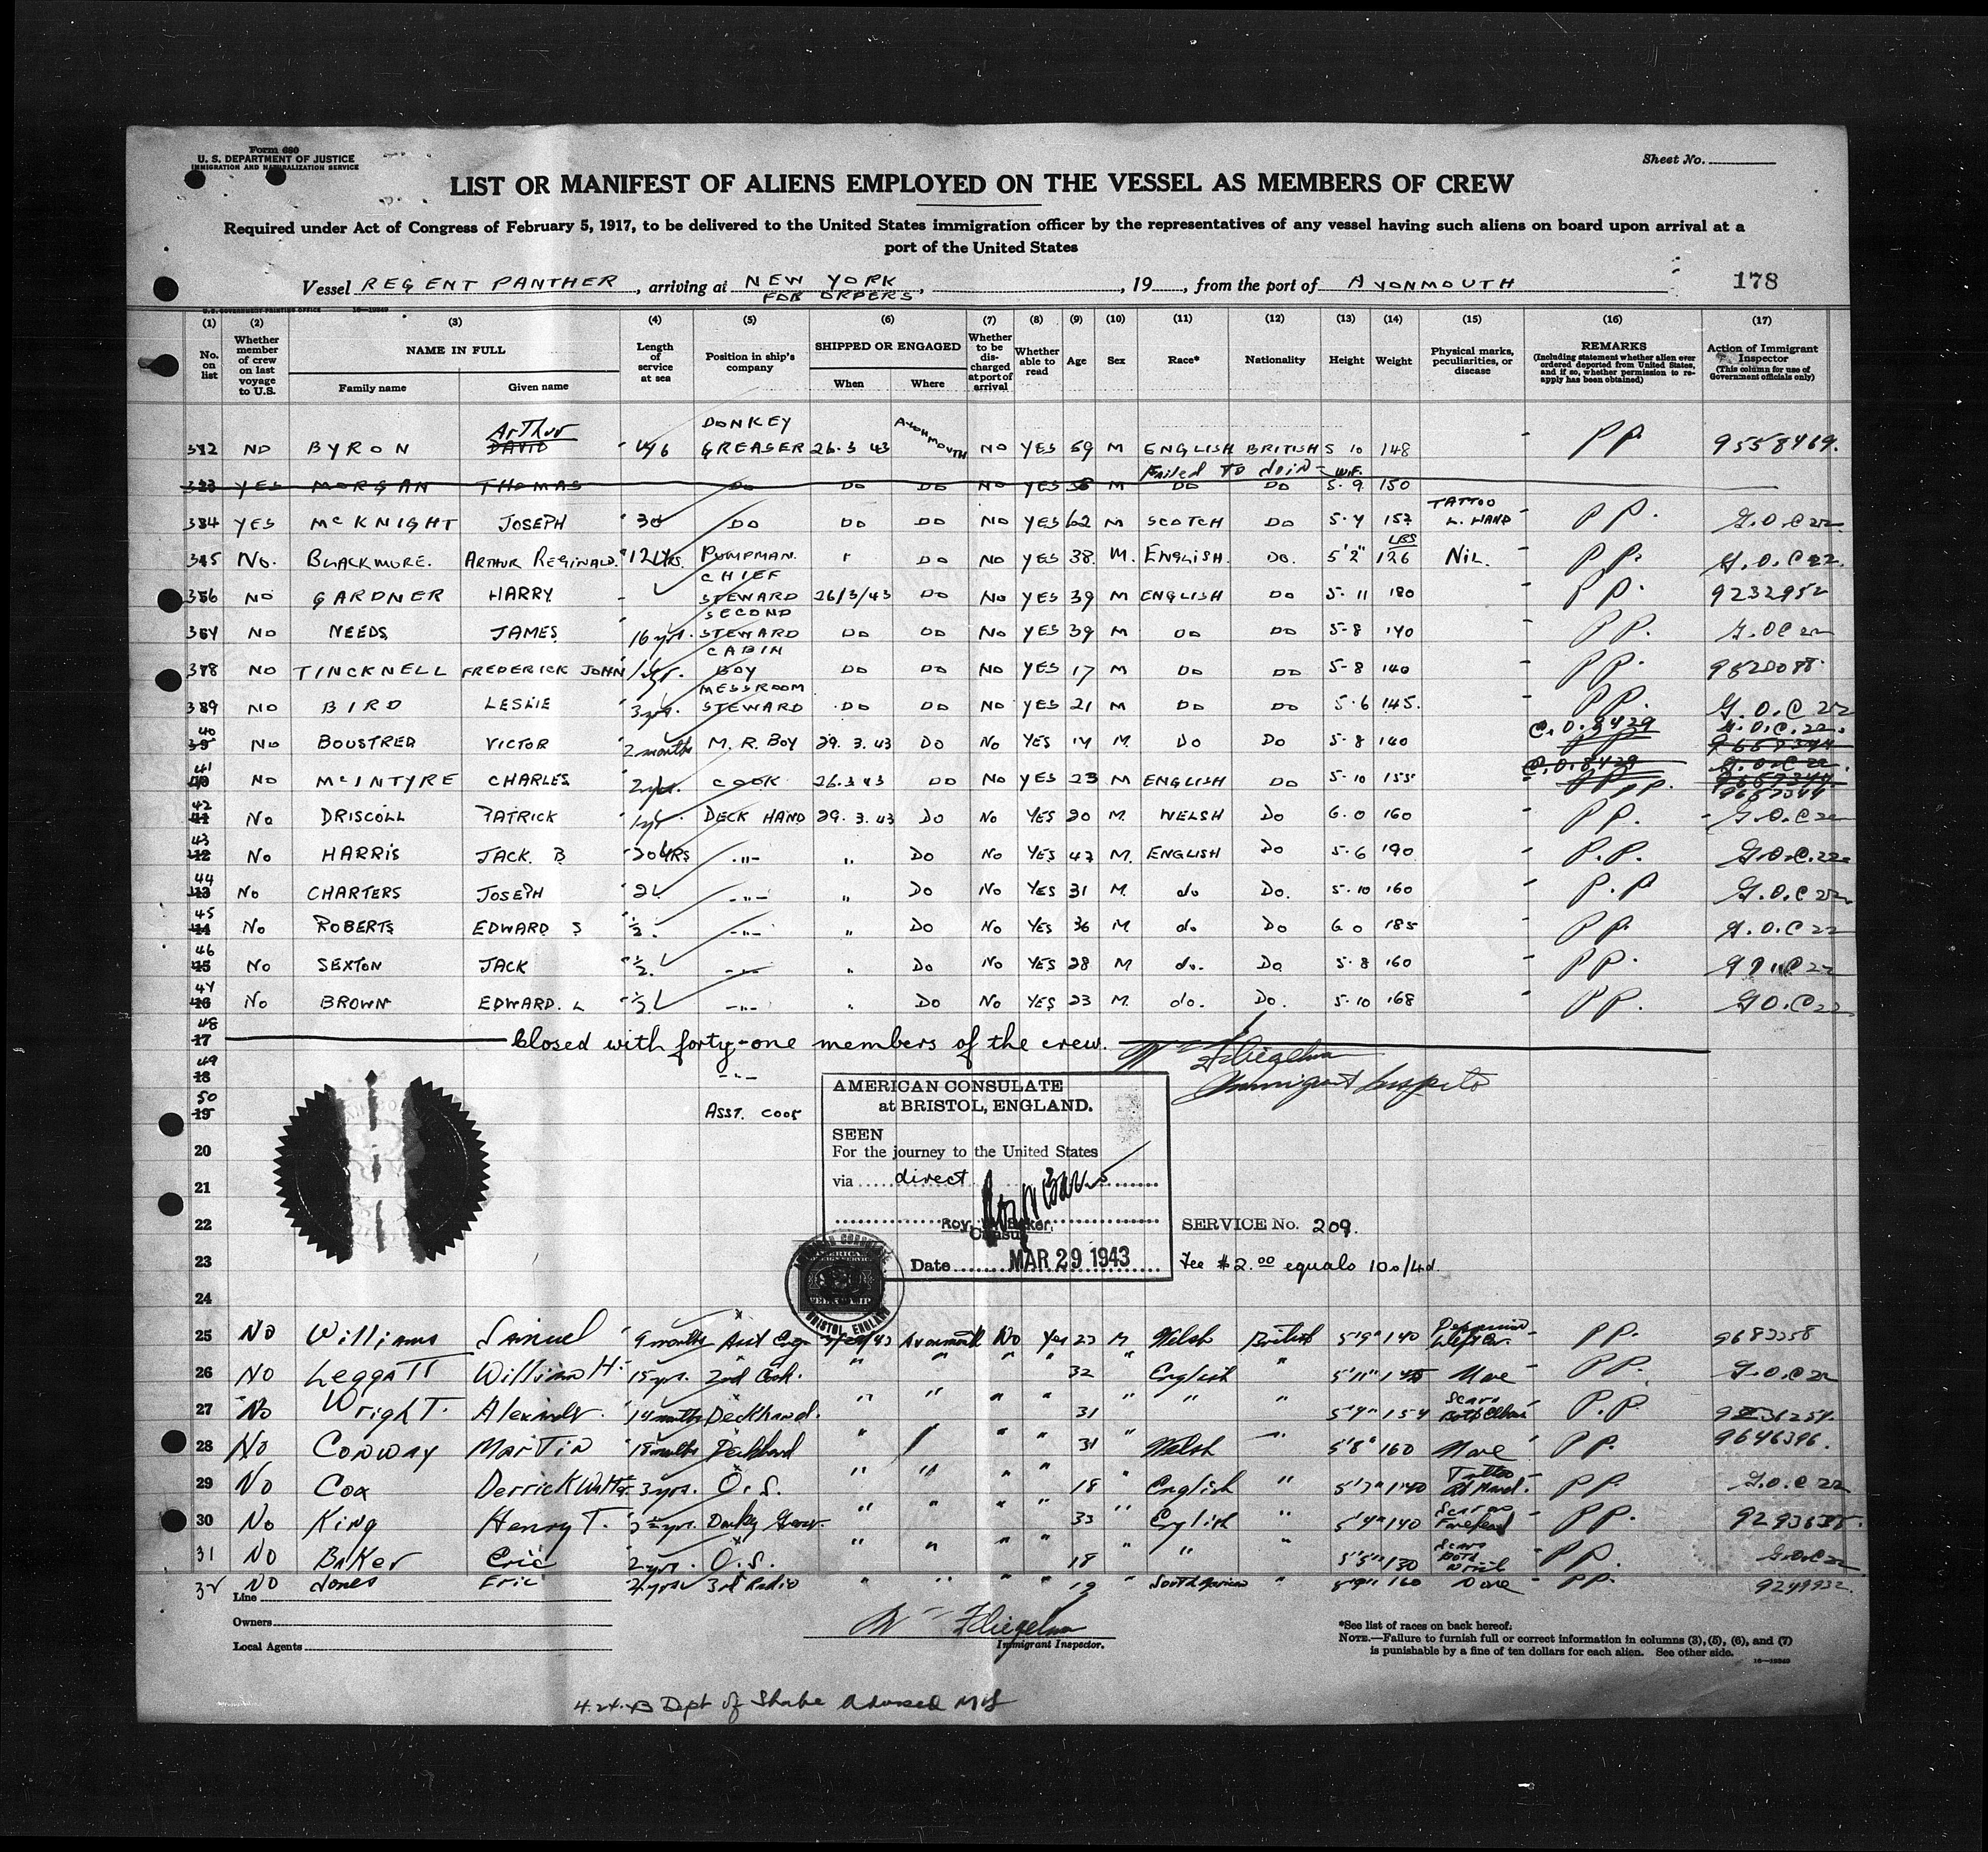 Form 680
U. S. DEPARTMENT OF JUSTICE
IMMIGRATION AND NATURALIZATION SERVICE
Sheet No.
LIST OR MANIFEST OF ALIENS EMPLOYED ON THE VESSEL AS MEMBERS OF CREW
Required under Act of Congress of February 5, 1917, to be delivered to the United States immigration officer by the representatives of any vessel having such aliens on board upon arrival at a
port of the United States
Vessel REGENT PANTHER, arriving at NEW YORK FOR ORDERS, 19, from the port of AVONMOUTH 178
(1) (2) (3) (4) (5) (6) (7) (8) (9) (10) (11) (12) (13) (14) (15) (16) (17)
No. on list
Whether member of crew on last voyage to U.S.
NAME IN FULL
Family name Given name
Length of service at sea
Position in ship's company
SHIPPED OR ENGAGED
When Where
Whether to be discharged at port of arrival
Whether able to read
Age Sex Race* Nationality Height Weight
Physical marks, peculiarities, or disease
REMARKS
(Including statement whether alien ever ordered deported from United States, and if so, whether permission to reapply has been obtained)
Action of Immigrant Inspector
(This column for use of Government officials only)
NO BYRON DAVID Arthur DONKEY GREASER 26.3 43 AVONMOUTH NO YES 59 M ENGLISH BRITISH 5 10 148 PP 9558469.
Failed to join
YES MORGAN THOMAS DO DO DO NO YES M DO DO 5.9 150
YES McKNIGHT JOSEPH 30 DO DO DO NO YES 62 M SCOTCH DO 5.4 157 TATTOO L. HAND PP. G.O.C 22
No. BLACKMORE. ARTHUR REGINALD. 12 YRS. PUMPMAN. DO NO YES 38. M. ENGLISH. DO. 5'2" 126 LBS NIL. PP. G.O.C 22.
NO GARDNER HARRY CHIEF STEWARD 26/3/43 DO NO YES 39 M ENGLISH DO 5-11 180 PP. 9232952
NO NEEDS JAMES 16 yrs. SECOND STEWARD DO DO NO YES 39 M DO DO 5-8 140 PP. G.O.C 22
NO TINCKNELL FREDERICK JOHN 1 yr. CABIN BOY DO DO NO YES 17 M DO DO 5-8 140 PP.
NO BIRD LESLIE 3 yrs. MESSROOM STEWARD DO DO NO YES 21 M DO DO 5.6 145. PP. G.O.C 22
40 39 No BOUSTRED VICTOR 2 months M. R. BOY 29. 3. 43 DO NO YES 14 M. DO DO 5-8 140 C.O.8429 G.O.C.22. 9657344
41 40 NO McINTYRE CHARLES 2 yrs. COOK 26.3 43 DO NO YES 23 M ENGLISH DO 5-10 155 C.O.8429 PP. G.O.C 22. 9657344 9657344
42 41 No DRISCOLL PATRICK 1 yr. DECK HAND 29. 3. 43 DO NO YES 20 M. WELSH DO 6.0 160 PP. G.O.C 22
43 42 No HARRIS JACK. B 20 YRS -"- " DO NO YES 47 M. ENGLISH DO 5-6 190 P.P. G.O.C.22.
44 43 No CHARTERS JOSEPH 2 -"- " DO NO YES 31 M. do DO. 5-10 160 P.P G.O.C 22
45 44 No ROBERTS EDWARD S ½. -"- " DO NO YES 36 M do DO 6 0 185 PP. G.O.C 22
46 45 No SEXTON JACK ½. -"- " DO NO YES 28 M do. DO 5.8 160 PP. C 22
47 46 No BROWN EDWARD. L ½ -"- " DO NO YES 23 M. do. DO. 5-10 168 PP. G.O.C 22
48 17 Closed with forty-one members of the crew.
W Fliegelman
Immigrant Inspector
49 18 -"-
50 19 ASST. COOK
20
21
22
23
24
AMERICAN CONSULATE
at BRISTOL, ENGLAND.
SEEN
For the journey to the United States
via direct
Roy W. Baker,
Consul
Date MAR 29 1943
SERVICE No. 209.
Fee $2.00 equals 10s/4d
25 No Williams Samuel 9 months Avonmouth No Yes 23 M Welsh British 5'9" 140 PP.
26 No Leggatt William H. 15 yrs. 2nd Cook. " " " " 32 " English " 5'11" None PP. G.O.C 22
27 No Wright. 14 months Deckhand. " " " " 31 " " " 154 Scars Both Elbows P.P
28 No Conway Martin 18 months Deckhand " " " 31 Welsh " 5'8" 160 None PP. 9646396.
29 No Cox Derrick Walter 3 yrs. O.S. " " " " 18 " English " 5'7" 140 PP. G.O.C 22
30 No King Henry T. Donkey Greaser. " " " " 33 " English " 5'4" 140 Scar on Forehead PP.
31 No Baker Eric 2 yrs. O.S. " " " " 18 " " 5'5" 130 PP. G.O.C 22
32 No Jones Eric 2 yrs 3rd Radio " " " " 19 " South African " 160 None PP. 9249932.
Line
Owners
Local Agents
W Fliegelman
Immigrant Inspector.
*See list of races on back hereof.
NOTE.—Failure to furnish full or correct information in columns (3), (5), (6), and (7)
is punishable by a fine of ten dollars for each alien. See other side.
Dept of State Advised